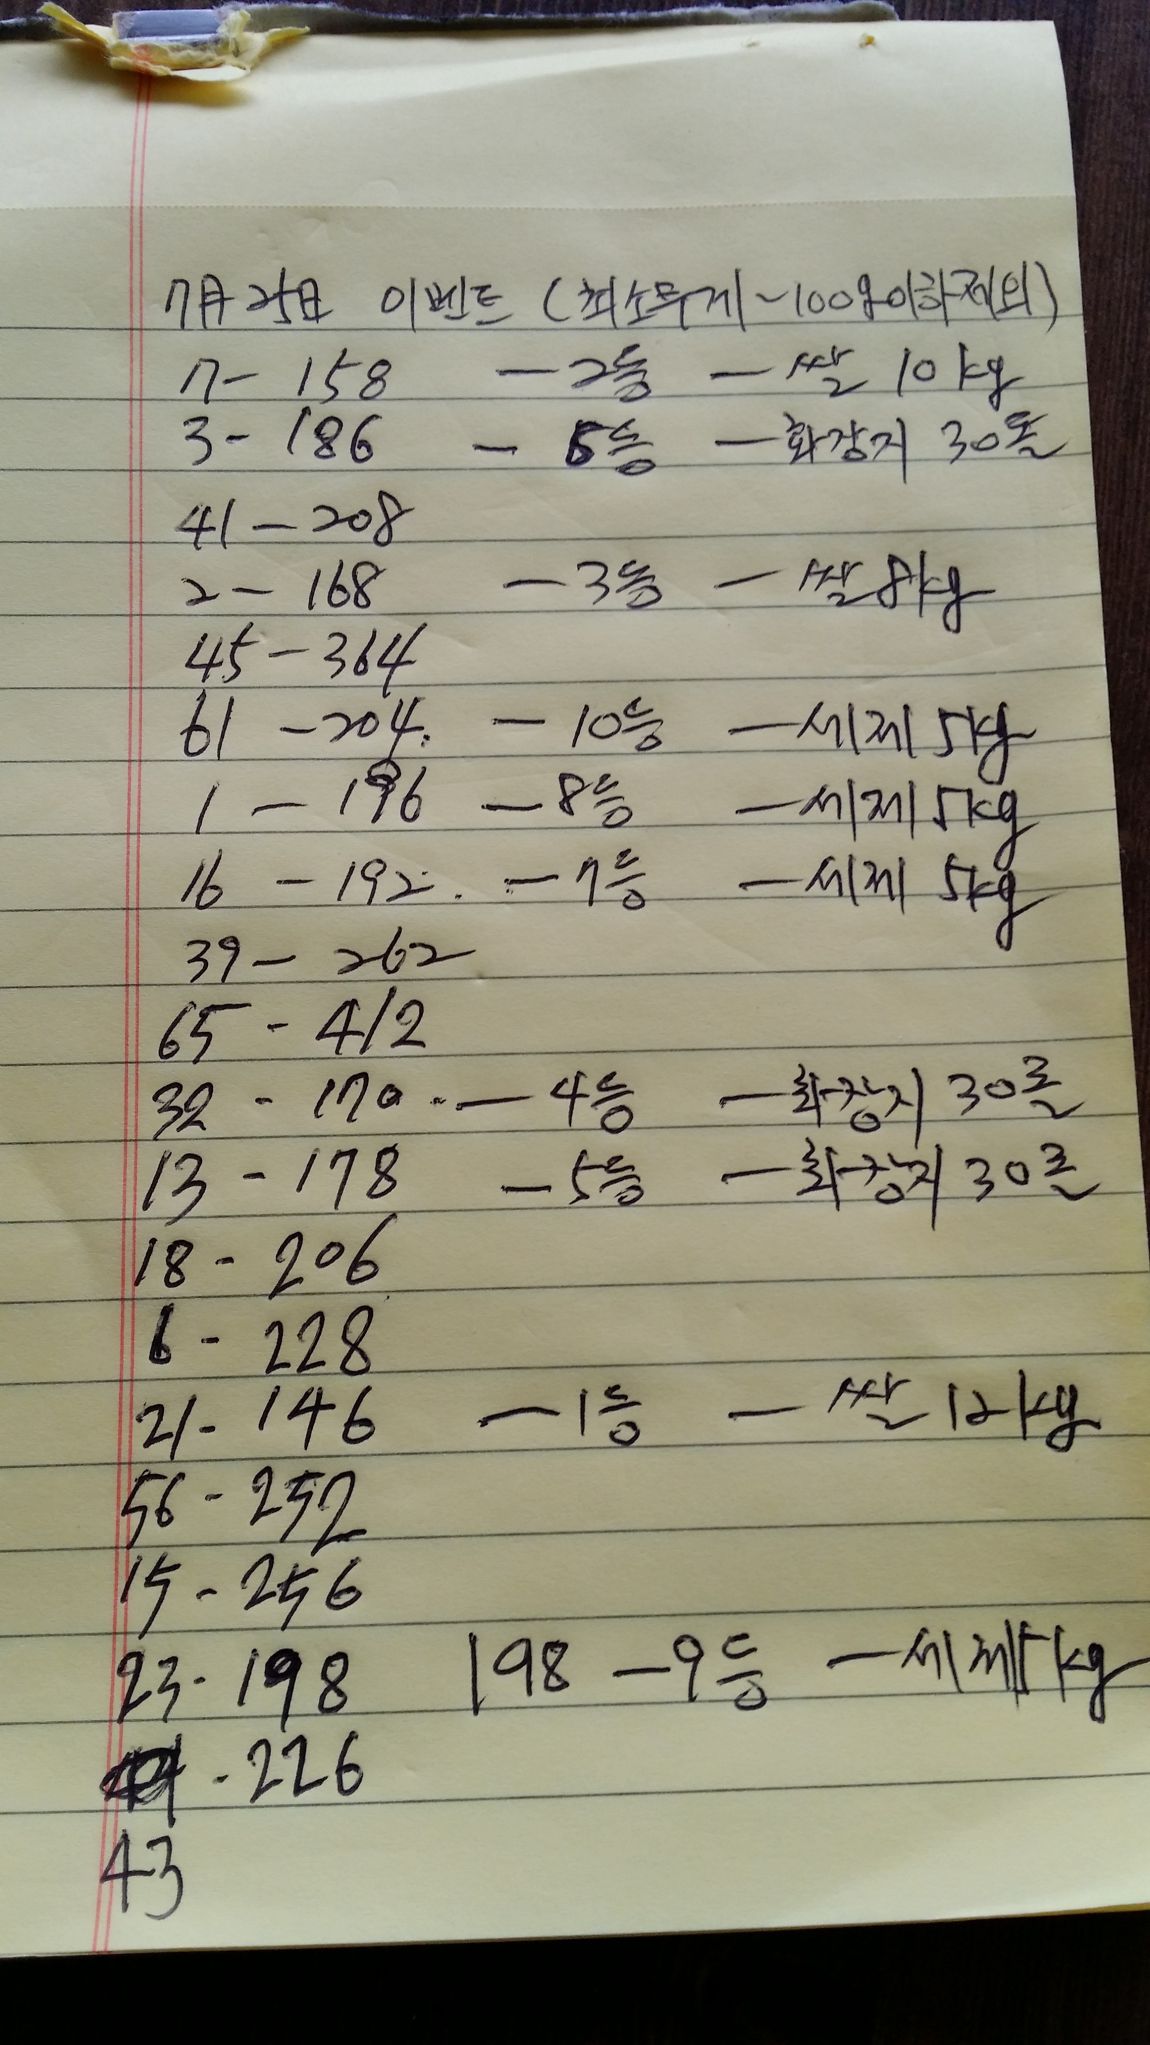 7月25日 이벤트 (최소무게 ~100g이하제외)
7- 158 - 2등 - 쌀 10kg
3- 186 - 6등 - 화장지 30롤
41 - 208
2 - 168 - 3등 - 쌀 8kg
45 - 364
61 - 204. - 10등 - 세제 5kg
1 - 196 - 8등 - 세제 5kg
16 - 192. - 7등 - 세제 5kg
39 - 262
65 - 412
32 - 170. - 4등 - 화장지 30롤
13 - 178 - 5등 - 화장지 30롤
18 - 206
6 - 228
21 - 146 - 1등 - 쌀 12kg
56 - 252
15 - 256
23 - 198 198 - 9등 - 세제 5kg
- 226
43